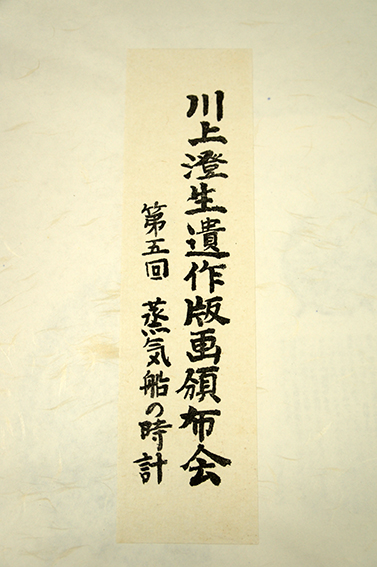 川上澄生遺作版画頒布会
第五回 蒸気船の時計